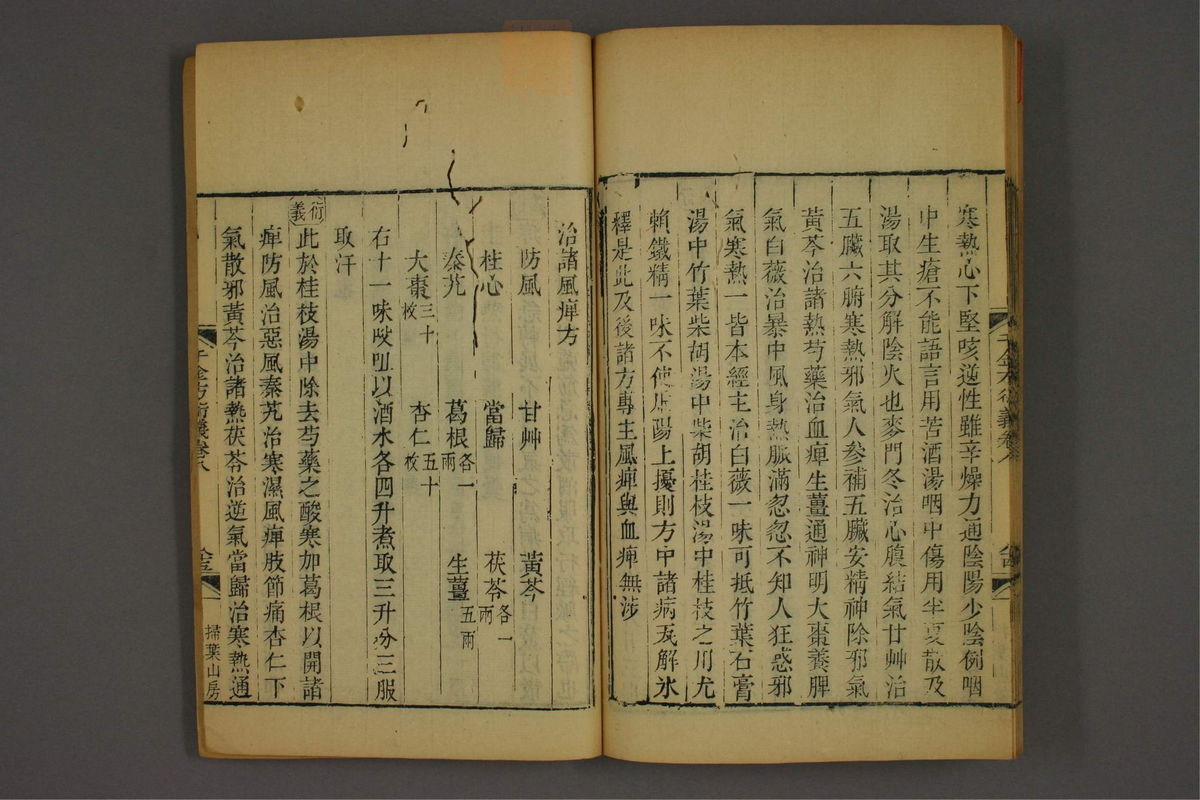 寒熱心下堅咳逆性雖辛燥力通陰陽少陰例咽
中生瘡不能語言用苦酒湯咽中傷用半夏散及
湯取其分解陰火也麥門冬治心腹結氣甘艸治
五臟六腑寒熱邪氣人參補五臟安精神除邪氣
黃芩治諸熱芍藥治血痺生薑通神明大棗養脾
氣白薇治暴中風身熱脈滿忽忽不知人狂惑邪
氣寒熱一皆本經主治白薇一味可抵竹葉石膏
湯中竹葉柴胡湯中柴胡桂枝湯中桂枝之用尤
賴鐵精一味不使虛陽上擾則方中諸病瓦解氷
釋是此及後諸方專主風痺與血痺無涉
千金方衍義卷八
治諸風痺方
防風 甘艸 黃芩
桂心 當歸 茯苓各一兩
秦艽 葛根各一兩 生薑五兩
大棗三十枚 杏仁五十枚
右十一味㕮咀以酒水各四升煮取三升分三服
取汗
衍義此於桂枝湯中除去芍藥之酸寒加葛根以開諸
痺防風治惡風秦艽治寒濕風痺肢節痛杏仁下
氣散邪黃芩治諸熱茯苓治逆氣當歸治寒熱通
千金方衍義卷八
掃葉山房